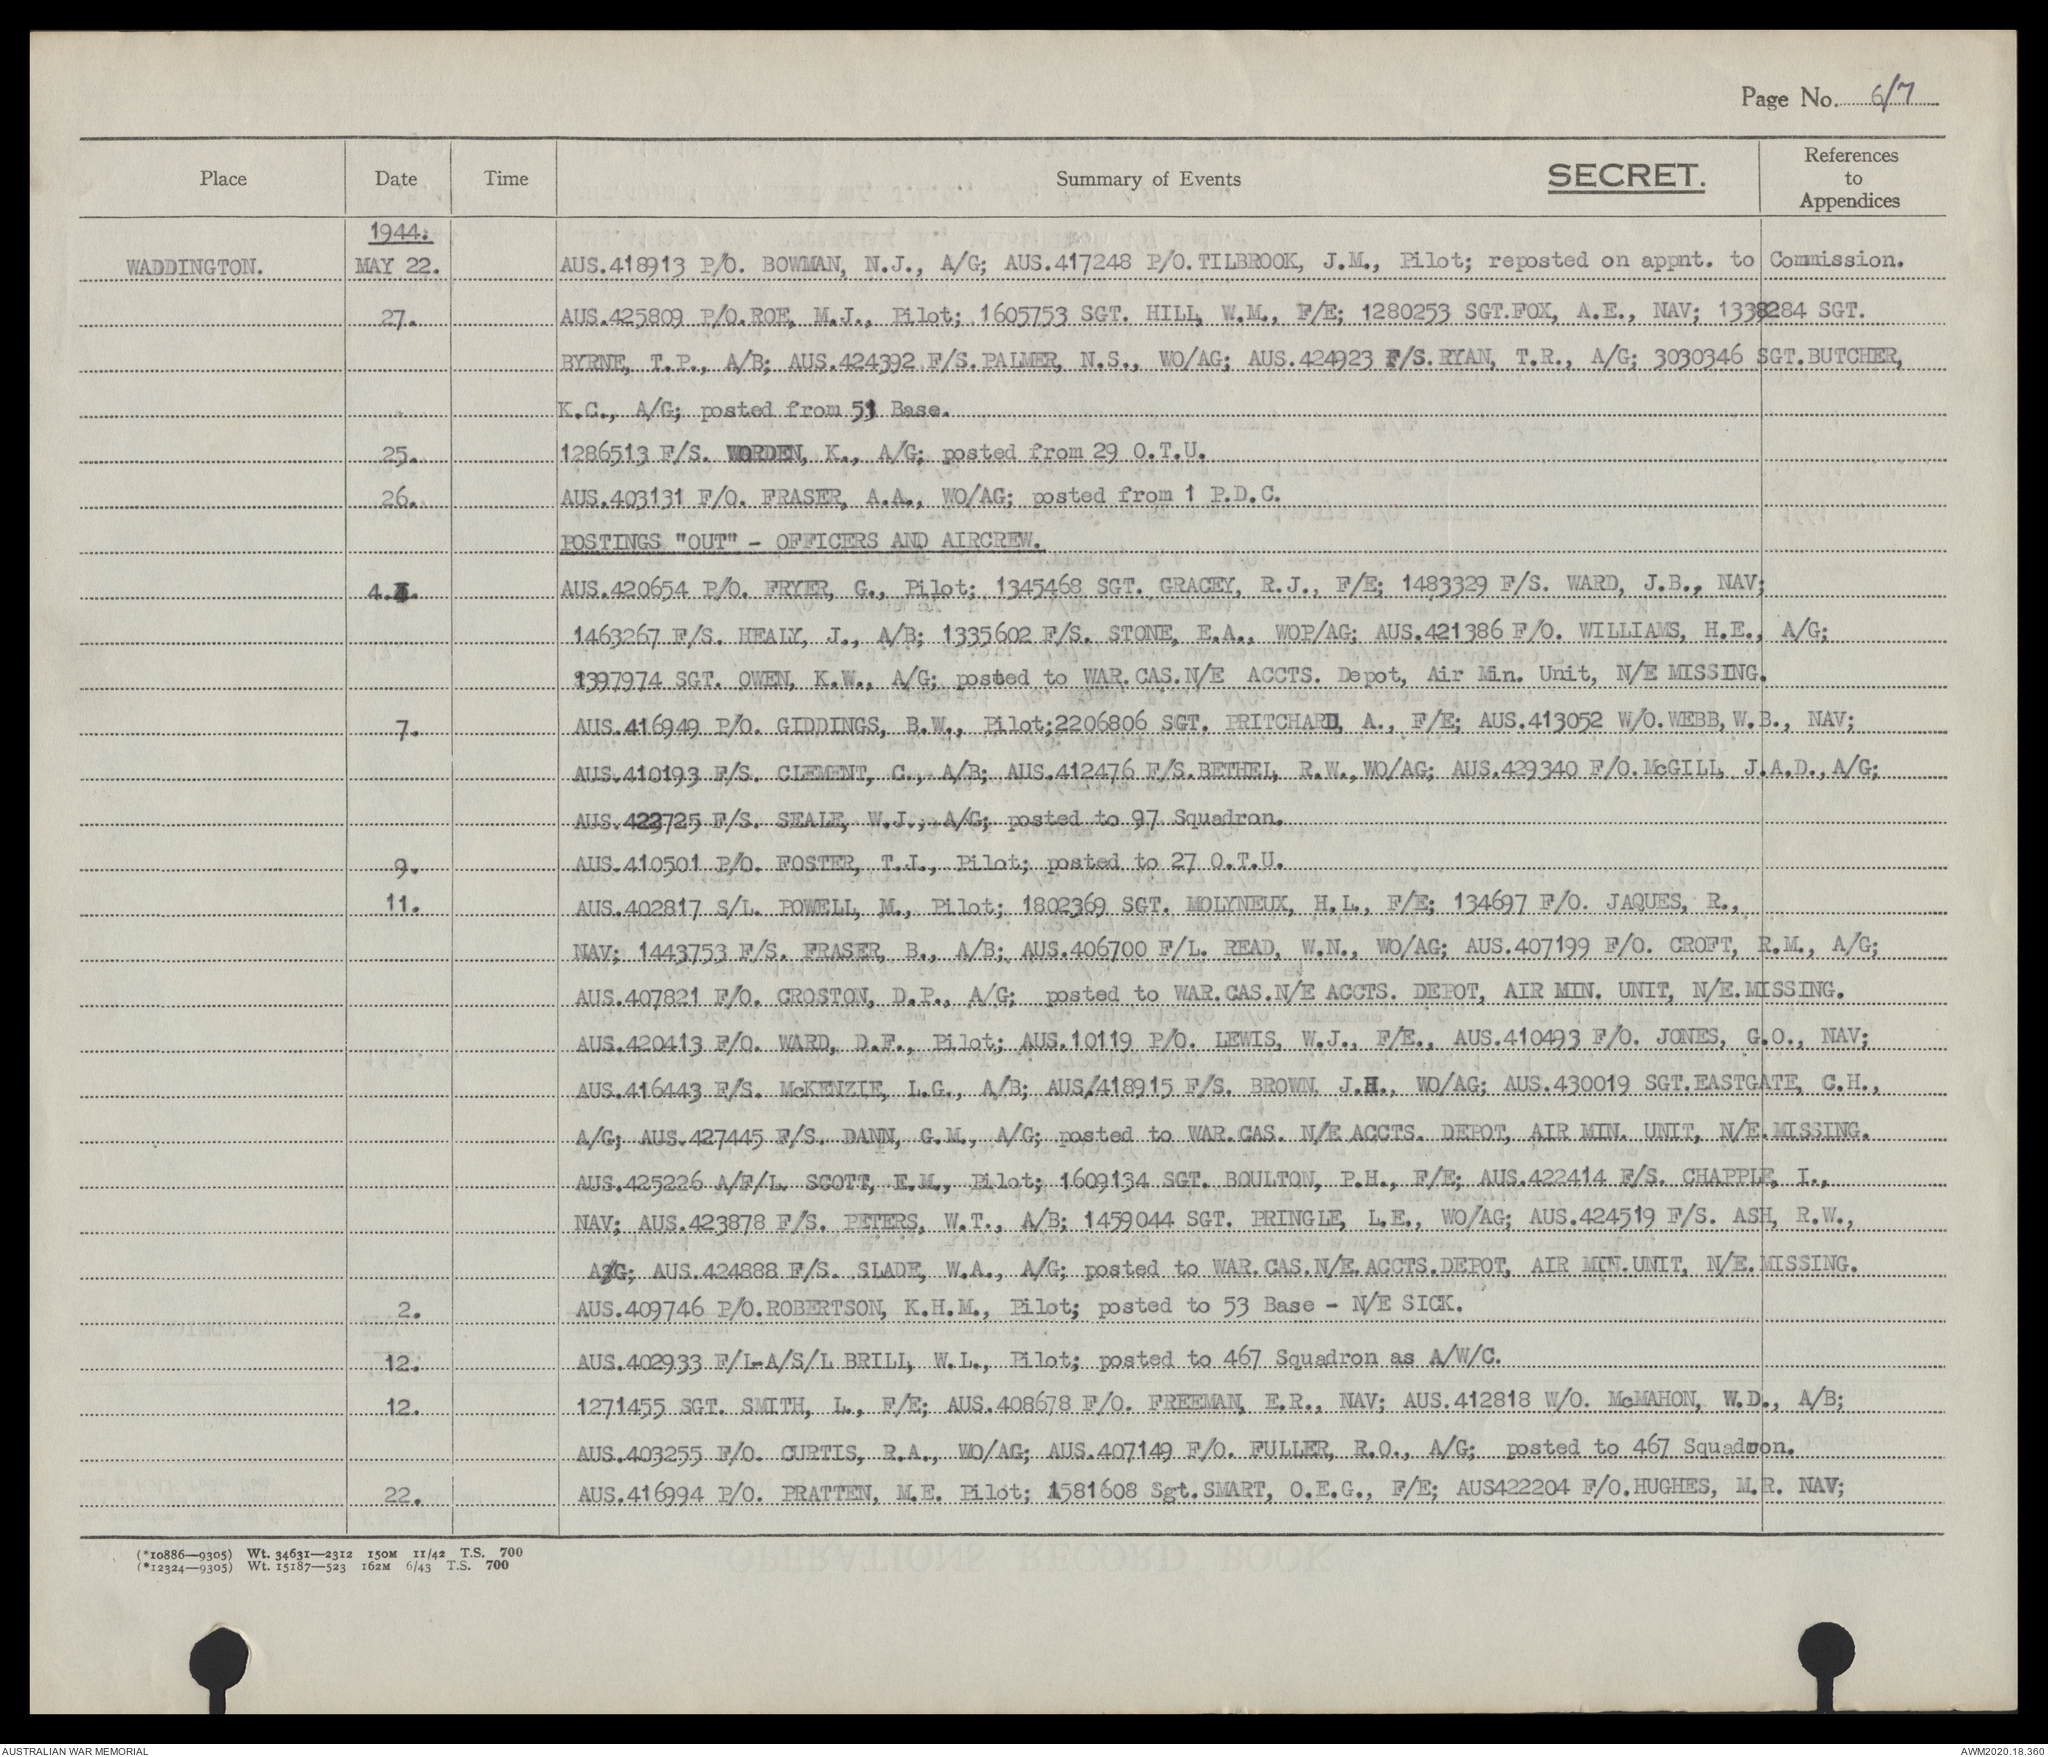 Page No. 6/7
Place Date Time Summary of Events SECRET. References to Appendices
1944.
WADDINGTON. MAY 22. AUS.418913 P/O. BOWMAN, N.J., A/G; AUS.417248 P/O.TILBROOK, J.M., Pilot; reposted on appnt. to Commission.
27. AUS.425809 P/O.ROE, M.J., Pilot; 1605753 SGT. HILL, W.M., F/E; 1280253 SGT.FOX, A.E., NAV; 1338284 SGT.
BYRNE, T.P., A/B; AUS.424392 F/S.PALMER, N.S., WO/AG; AUS.424923 F/S.RYAN, T.R., A/G; 3030346 SGT.BUTCHER,
K.C., A/G; posted from 51 Base.
25. 1286513 F/S. WORDEN, K., A/G; posted from 29 O.T.U.
26. AUS.403131 F/O. FRASER, A.A., WO/AG; posted from 1 P.D.C.
POSTINGS "OUT" - OFFICERS AND AIRCREW.
4. AUS.420654 P/O. FRYER, G., Pilot; 1345468 SGT. GRACEY, R.J., F/E; 1483329 F/S. WARD, J.B., NAV;
1463267 F/S. HEALY, J., A/B; 1335602 F/S. STONE, E.A., WOP/AG; AUS.421386 F/O. WILLIAMS, H.E., A/G;
1397974 SGT. OWEN, K.W., A/G; posted to WAR.CAS.N/E ACCTS. Depot, Air Min. Unit, N/E MISSING.
7. AUS.416949 P/O. GIDDINGS, B.W., Pilot;2206806 SGT. PRITCHARD, A., F/E; AUS.413052 W/O.WEBB,W.B., NAV;
AUS.410193 F/S. CLEMENT, C., A/B; AUS.412476 F/S.BETHEL, R.W.,WO/AG; AUS.429340 F/O.McGILL, J.A.D.,A/G;
AUS.423725 F/S. SEALE, W.J., A/G; posted to 97 Squadron.
9. AUS.410501 P/O. FOSTER, T.J., Pilot; posted to 27 O.T.U.
11. AUS.402817 S/L. POWELL, M., Pilot; 1802369 SGT. MOLYNEUX, H.L., F/E; 134697 F/O. JAQUES, R.,
NAV; 1443753 F/S. FRASER, B., A/B; AUS.406700 F/L. READ, W.N., WO/AG; AUS.407199 F/O. CROFT, R.M., A/G;
AUS.407821 F/O. CROSTON, D.P., A/G; posted to WAR.CAS.N/E ACCTS. DEPOT, AIR MIN. UNIT, N/E.MISSING.
AUS.420413 F/O. WARD, D.F., Pilot; AUS.10119 P/O. LEWIS, W.J., F/E., AUS.410493 F/O. JONES, G.O., NAV;
AUS.416443 F/S. McKENZIE, L.G., A/B; AUS/418915 F/S. BROWN, J.H., WO/AG; AUS.430019 SGT.EASTGATE, C.H.,
A/G; AUS.427445 F/S. DANN, G.M., A/G; posted to WAR.CAS. N/E ACCTS. DEPOT, AIR MIN. UNIT, N/E.MISSING.
AUS.425226 A/F/L. SCOTT, E.M., Pilot; 1609134 SGT. BOULTON, P.H., F/E; AUS.422414 F/S. CHAPPLE, I.,
NAV; AUS.423878 F/S. PETERS, W.T., A/B; 1459044 SGT. PRINGLE, L.E., WO/AG; AUS.424519 F/S. ASH, R.W.,
A/G; AUS.424888 F/S. SLADE, W.A., A/G; posted to WAR.CAS.N/E.ACCTS.DEPOT, AIR MIN.UNIT, N/E.MISSING.
2. AUS.409746 P/O.ROBERTSON, K.H.M., Pilot; posted to 53 Base - N/E SICK.
12. AUS.402933 F/L-A/S/L BRILL, W.L., Pilot; posted to 467 Squadron as A/W/C.
12. 1271455 SGT. SMITH, L., F/E; AUS.408678 F/O. FREEMAN, E.R., NAV; AUS.412818 W/O. McMAHON, W.D., A/B;
AUS.403255 F/O. CURTIS, R.A., WO/AG; AUS.407149 F/O. FULLER, R.O., A/G; posted to 467 Squadron.
22. AUS.416994 P/O. PRATTEN, M.E. Pilot; 1581608 Sgt.SMART, O.E.G., F/E; AUS422204 F/O.HUGHES, M.R. NAV;
(*10886—9305) Wt. 34631—2312 150M 11/42 T.S. 700
(*12324—9305) Wt. 15187—523 162M 6/43 T.S. 700
AUSTRALIAN WAR MEMORIAL AWM2020.18.360